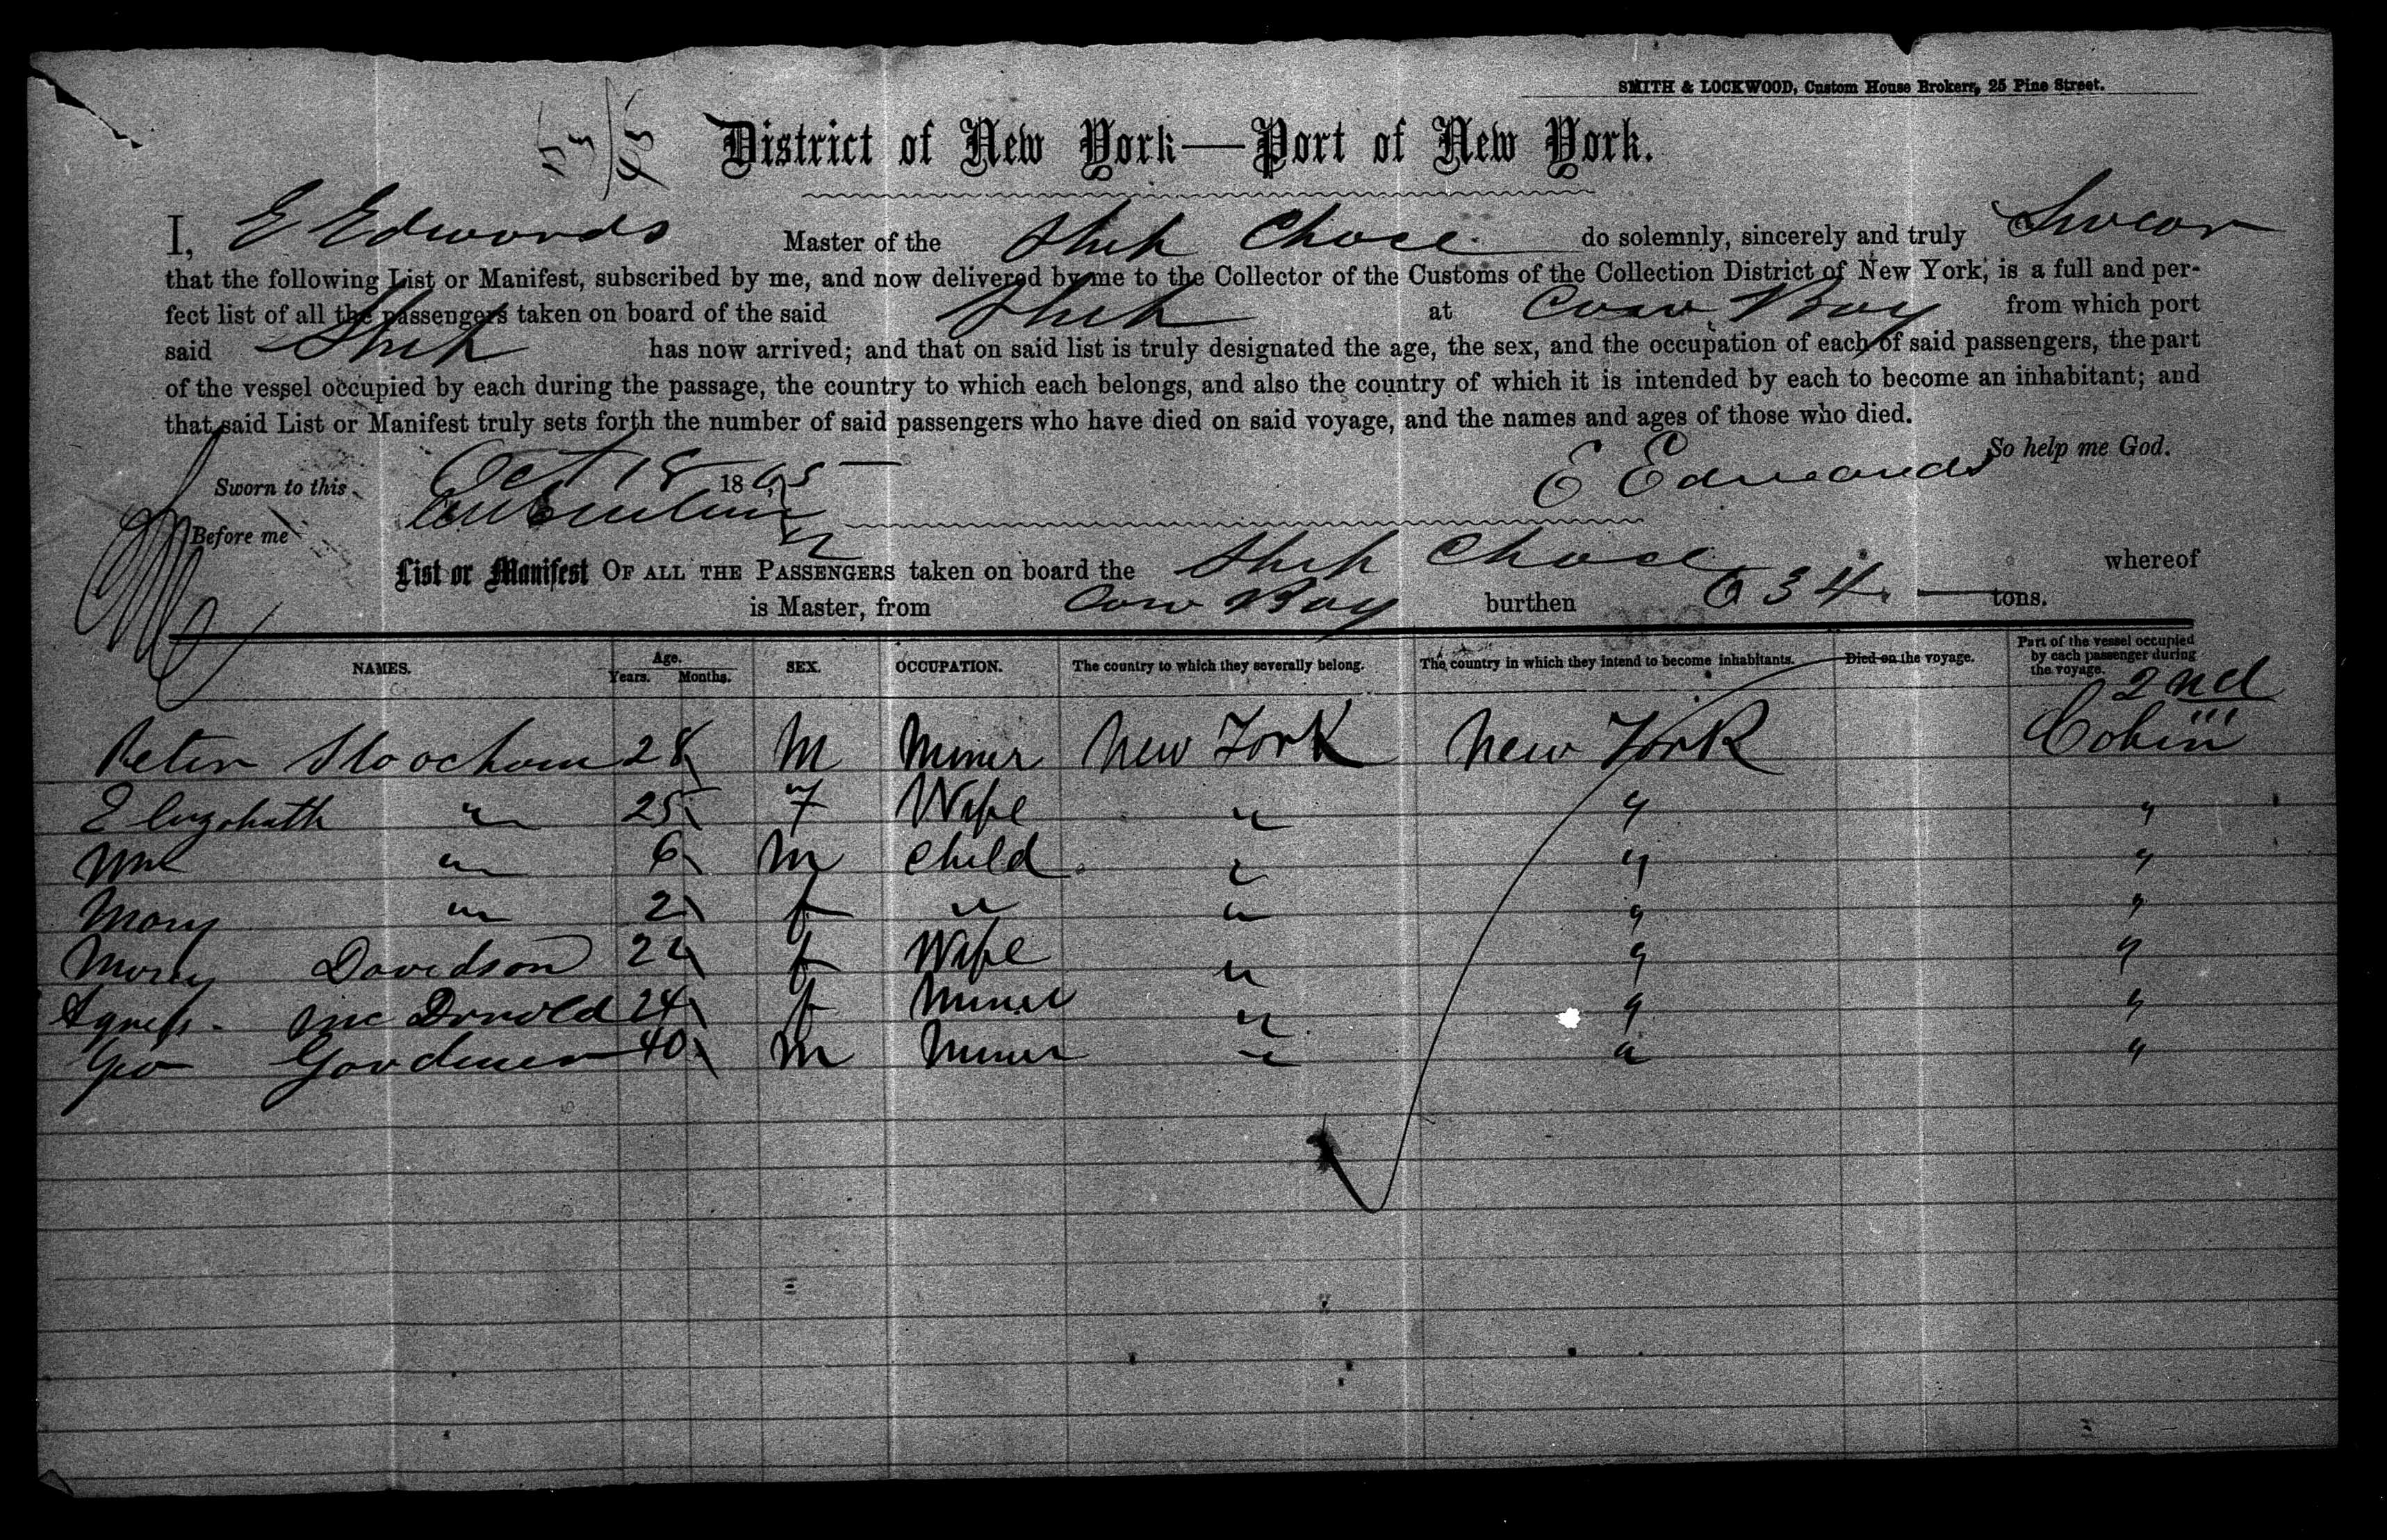 SMITH & LOCKWOOD, Custom House Brokers, 25 Pine Street.
District of New York—Port of New York.
I, E Edwards Master of the Ship Chace do solemnly, sincerely and truly Swear
that the following List or Manifest, subscribed by me, and now delivered by me to the Collector of the Customs of the Collection District of New York, is a full and per-
fect list of all the passengers taken on board of the said Ship at Cow Bay from which port
said Ship has now arrived; and that on said list is truly designated the age, the sex, and the occupation of each of said passengers, the part
of the vessel occupied by each during the passage, the country to which each belongs, and also the country of which it is intended by each to become an inhabitant; and
that said List or Manifest truly sets forth the number of said passengers who have died on said voyage, and the names and ages of those who died.
So help me God.
Sworn to this Oct 18 1865 E Edwards
Before me
List or Manifest OF ALL THE PASSENGERS taken on board the Ship Chace whereof
is Master, from Cow Bay burthen 634 tons.
NAMES. Age. Years. Months. SEX. OCCUPATION. The country to which they severally belong. The country in which they intend to become inhabitants. Died on the voyage. Part of the vessel occupied by each passenger during the voyage.
2nd
Peter 28 M Miner New York New York Cabin
Elizabeth " 25 F Wife " " "
Wm " 6 M Child " " "
Mary " 2 f " " " "
Mary Davidson 22 f Wife " " "
Agness Mc Donald 24 f Miner " " "
Geo Gardener 40 M Miner " " "